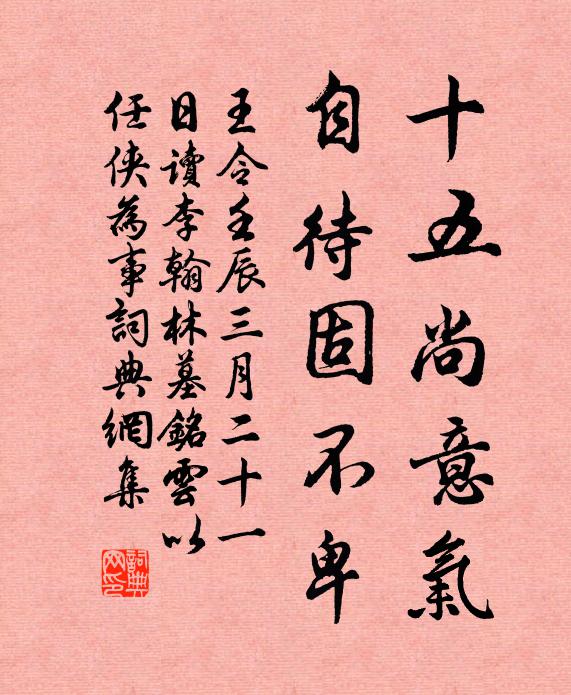 十五尚意氣
自待固不卑
王令壬辰三月二十一
日讀李翰林墓銘雲以
任俠為事詞典網集
詞典网印